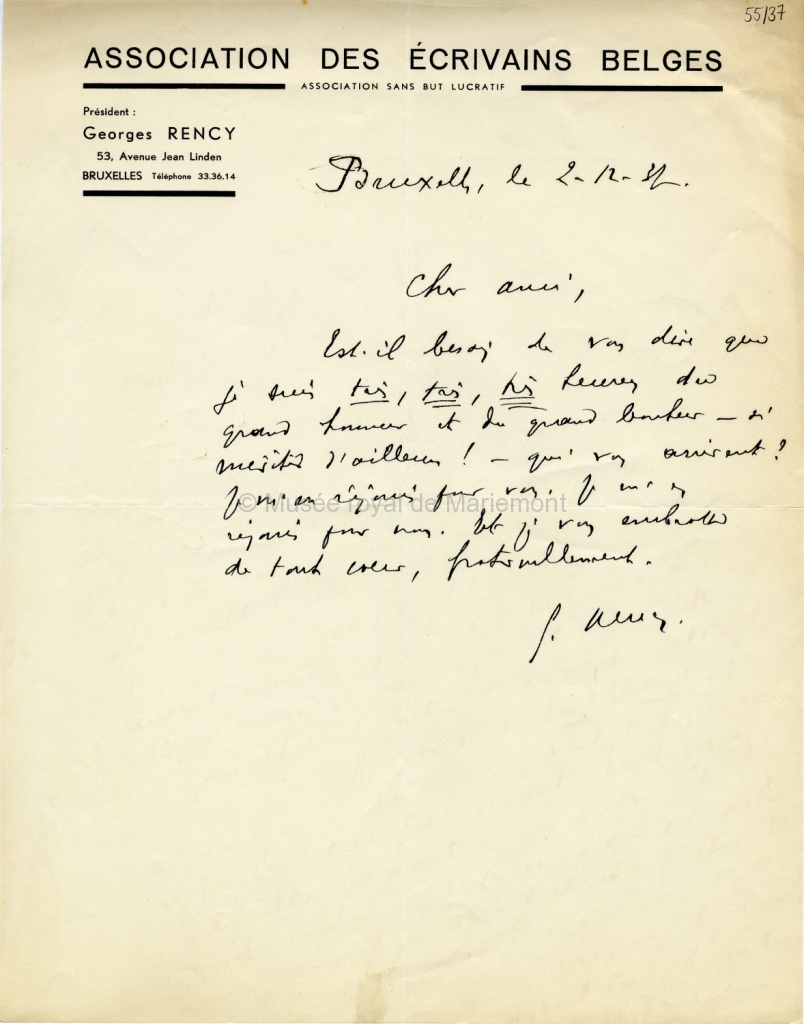 55/37
ASSOCIATION DES ÉCRIVAINS BELGES
ASSOCIATION SANS BUT LUCRATIF
Président :
Georges RENCY
53, Avenue Jean Linden
BRUXELLES Téléphone 33.36.14
Bruxelles, le 2-12-37.
Cher ami,
Est-il besoin de vous dire que
je suis très, très, très heureux du
grand honneur et du grand bonheur – si
mérités d'ailleurs ! – qui vous arrivent ?
Je m'en réjouis pour vous. Je m'en
réjouis pour nous. Et je vous embrasse
de tout cœur, fraternellement.
G. Rency.
© Musée royal de Mariemont